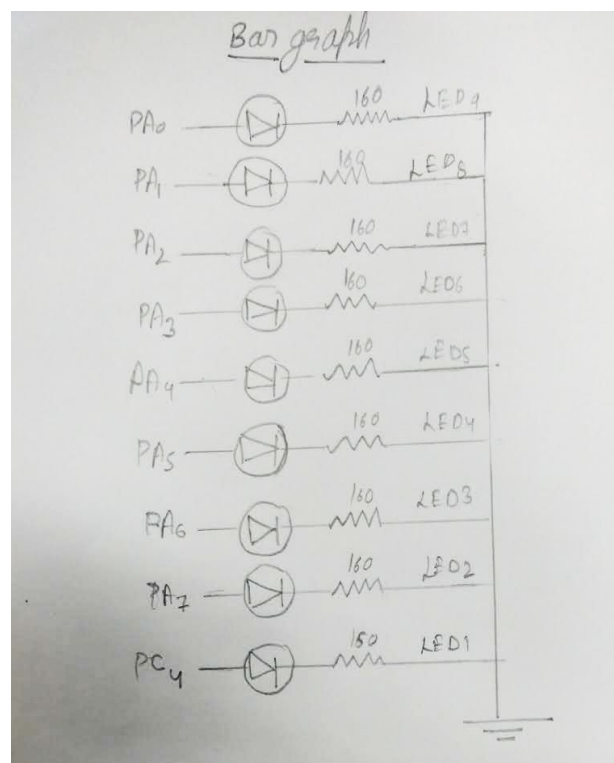 Bar graph
PA0 160 LED9
PA1 160 LED8
PA2 160 LED7
PA3 160 LED6
PA4 160 LED5
PA5 160 LED4
PA6 160 LED3
PA7 160 LED2
PC4 160 LED1